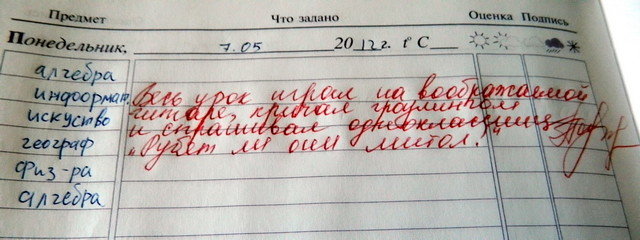 Предмет Что задано Оценка Подпись
Понедельник. 7.05 2012 г. t° С
алгебра
информат Весь урок играл на воображаемой
искуство гитаре, кричал гроулингом
и спрашивал одноклассниц
географ „Рубет ли они митол."
физ-ра
алгебра